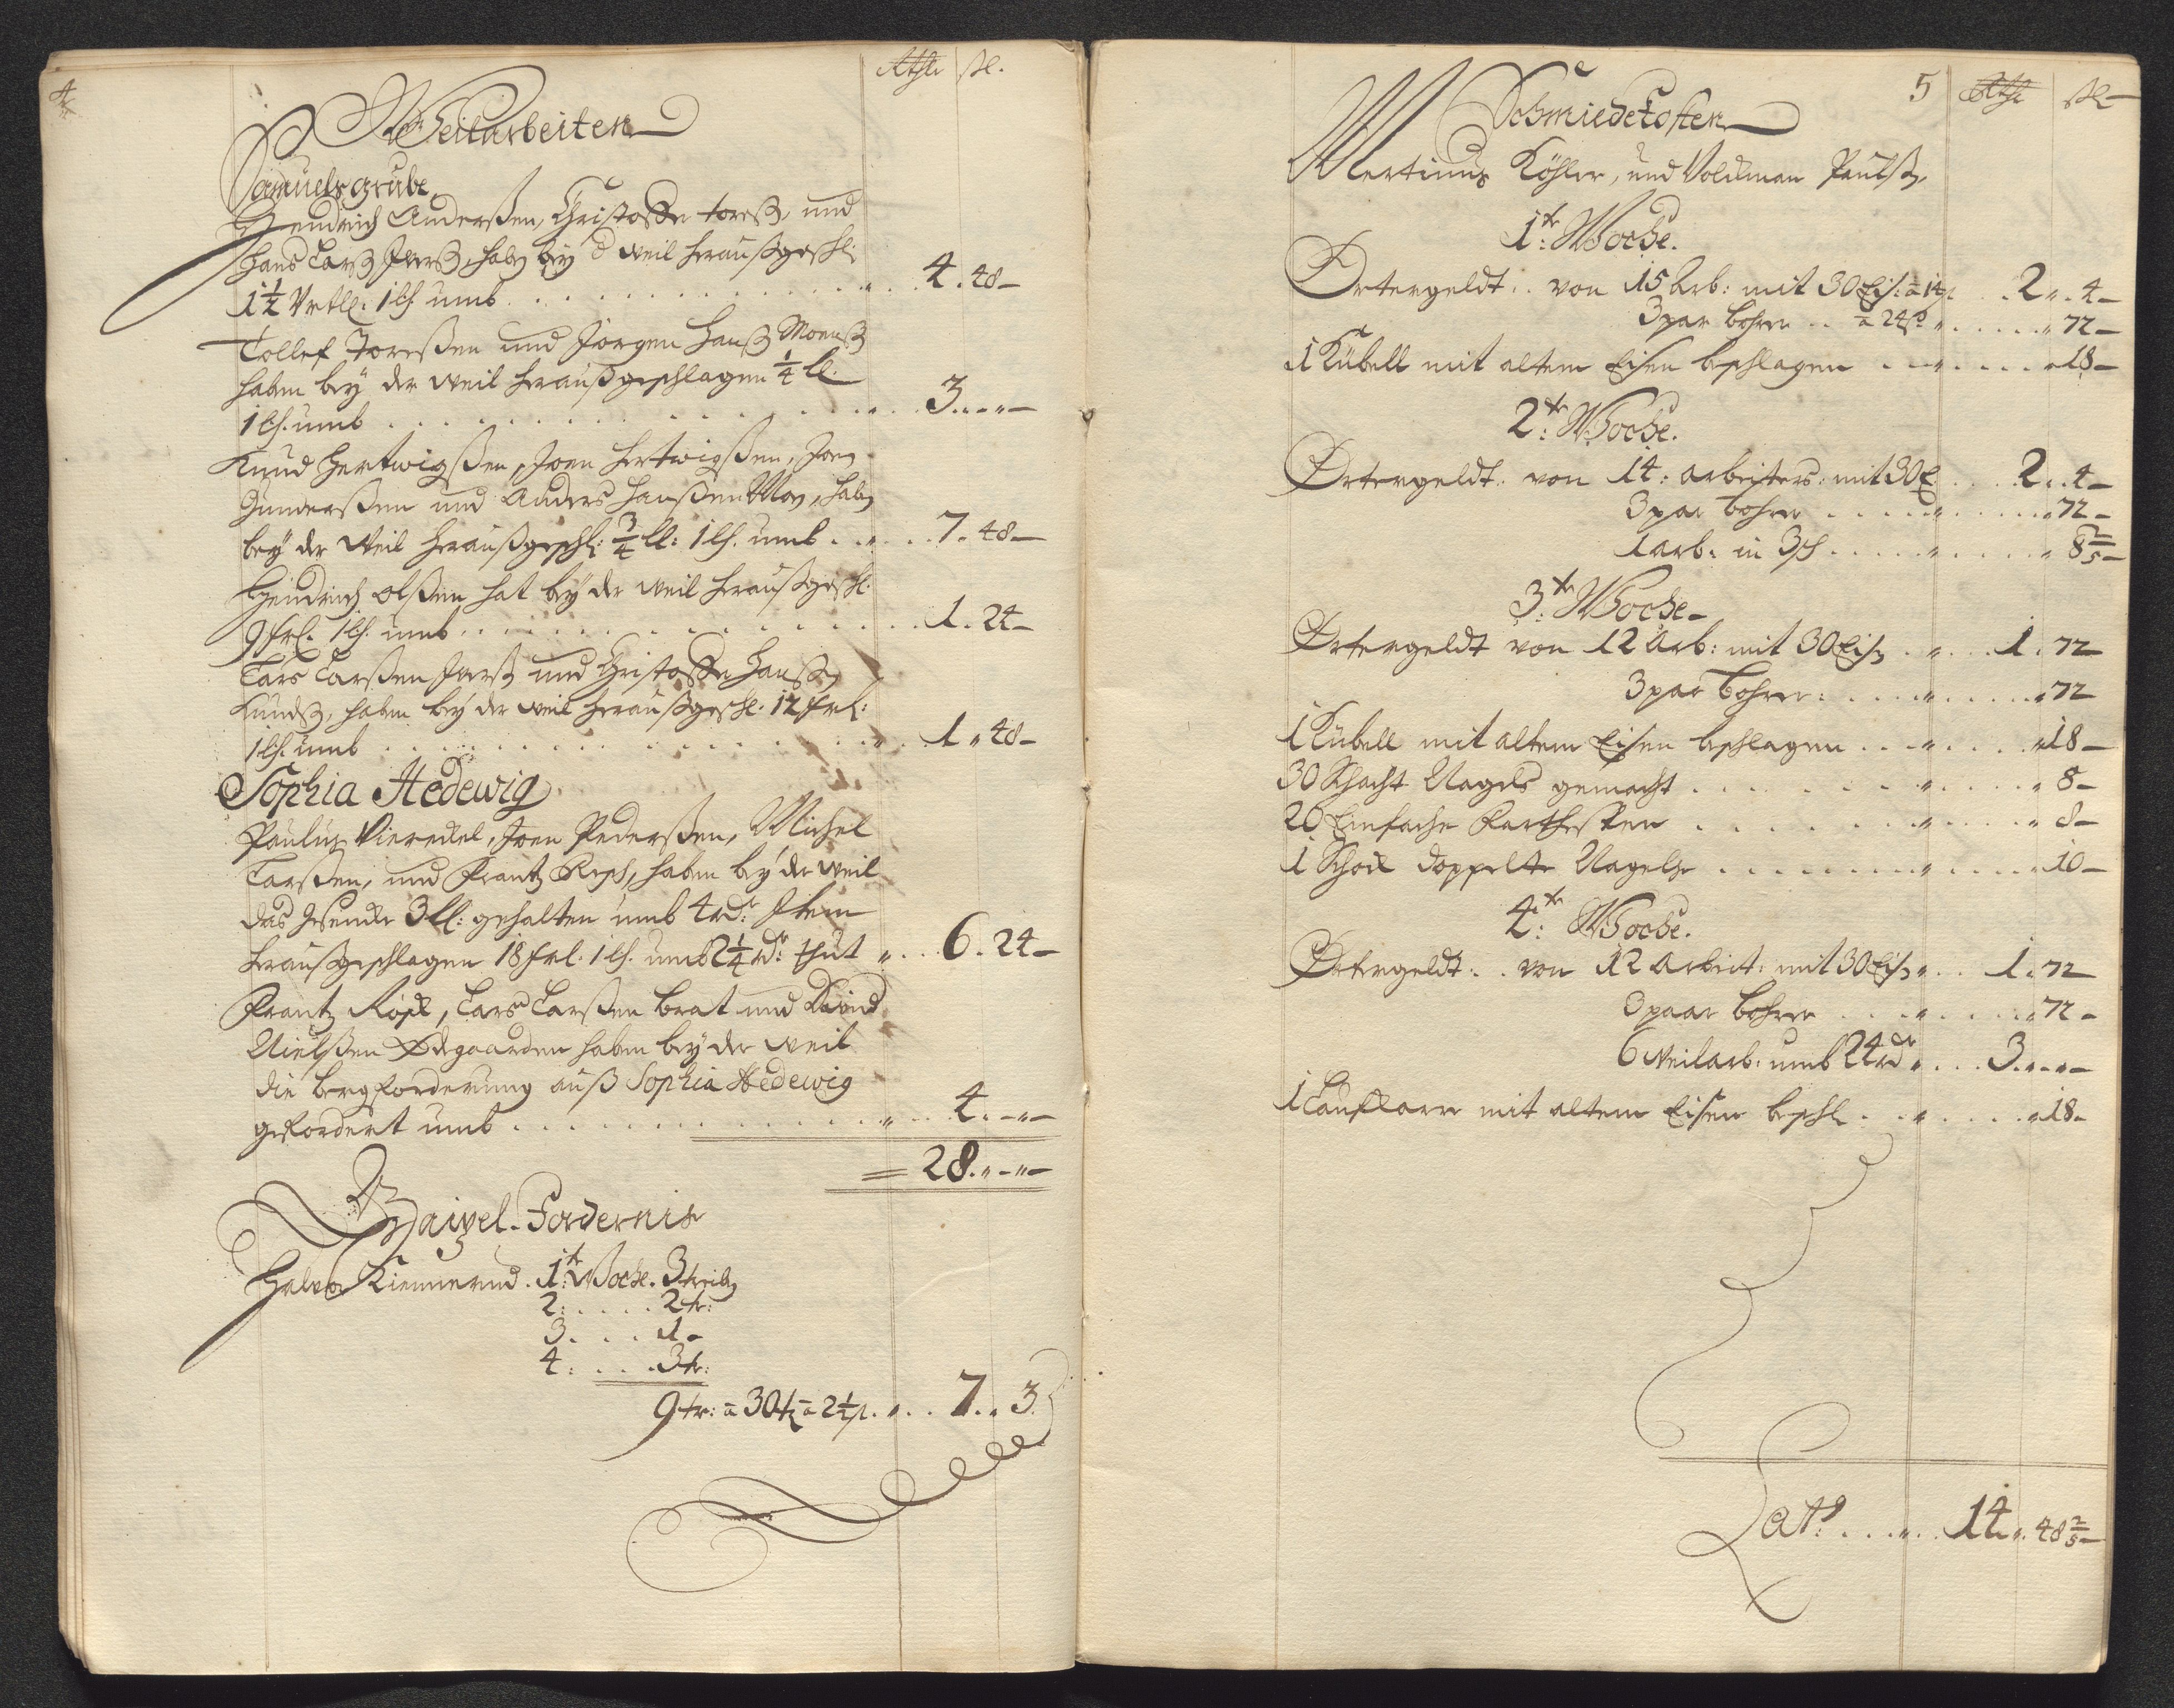 4
Rthlr ßl.
Weilarbeiten
Samuels grube
Hendrich Anderßen, Christoffer Torß, und
Hans Larß Iverß, haben bey d weil heraußgeschl:
1½ Vrtll: 1 lh umb . . . 4. 48
Tollef Toreßen und Jörgen Hanß Moenß
haben bey der weil heraußgeschlagen ¼ ll.
1 lh. umb . . . 3. „ –
Knud Hertwigßen, Joen Hertwigßen, Joen
Gunnerßen und Anders Hanßen Moe, haben
bey der Weil heraußgeschl: ¾ ll: 1 lh. umb . . . 7. 48
Hendrich Olßen hat bey der weil heraußgeschl:
9 frl. 1 lh. umb . . . 1. 24
Lars Larßen Iverß und Christoffer Hanß
Knudß, haben bey der weil heraußgeschl. 12 frl:
1 lh. umb . . . 1 „ 48
Sophia Hedewig
Paulus Vieredel, Joen Pederßen, Michel
Larßen, und Frantz Resch, haben bey der weil
das gesencke 3 ll: gehalten umb 4 rd:r Item
heraußgeschlagen 18 frl. 1 lh. umb 2¼ rd:r thut „ . . 6. 24
Frantz Röpl, Lars Larßen Brat und David
Nielßen Ødegaarden haben bey der weil
die bergforderung auß Sophia Hedewig
gefordert umb . . . 4. „ –
= 28. „ – „ –
Gaipel-Fordernis
Halvor Kiennerud. 1:te Woche. 3 treiben
2: . . . . 2 tr:
3. . . . 1 –
4: . . . 3 tr:
9 tr: a 30 tz a 2½ ß. „ . . 7. „ 3.
5 Rthlr ßl
Schmiedekosten
Mertinus Köhler, und Voldman Paulß,
1:te Woche.
Ørtergeldt . . von 15 Arb: mit 30 Eis: a 14 ß . . 2 „ . 4
3 par bohrer . . a 24 ß „ . . . „ 72
1 Kübell mit altem Eisen beschlagen . . „ . . . „ 18
2:te Woche.
Ørtergeldt. von 14: arbeiters: mit 30 E . . . 2 . . 4
3 par bohrer . . . „ . . . „ 72
1 arb: in 3 sch . . . „ . . . „ 8⅖
3:te Woche
Ørtergeldt von 12 Arb: mit 30 Eisen . . „ . . 1. 72
3 par bohrer: . . . „ . . . „ 72
1 Kübell mit altem Eisen beschlagen . . . „ . . . „ 18
30 Schacht Nagels gemacht . . . „ . . . „ 8
20 Einfache . . . „ . . . „ 8
1 Schock doppelte Nagels . . . „ . . . „ 10
4:te Woche.
Ørtergeldt: . . von 12 Arbeit: mit 30 Eisen „ . . 1. 72
3 paar bohrer . . . „ . . . „ 72
6 Weilarb: umb 24 rd:r „ . . . 3. „ –
1 Laufkarre mit altem Eisen beschl. . . „ . . . „ 18
Lats: . . . „ . . 14. „ 48⅖